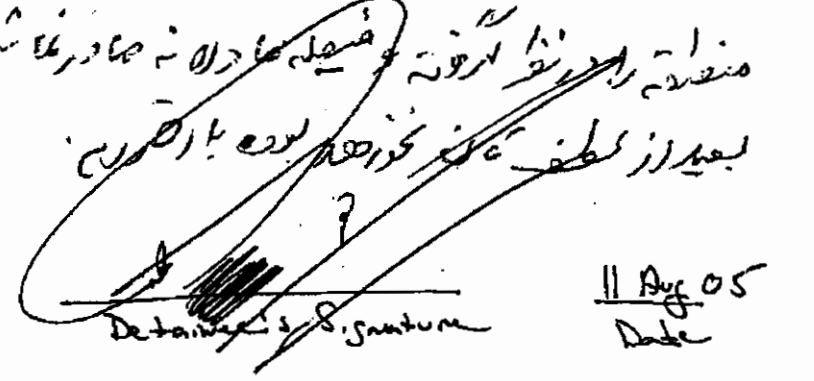 منصفانه را در نظر گرفته و فیصله عادلانه صادر نما
بعید از لطف تان نخواهد بود با احترام
?
Detainee's Signature
11 Aug 05
Date